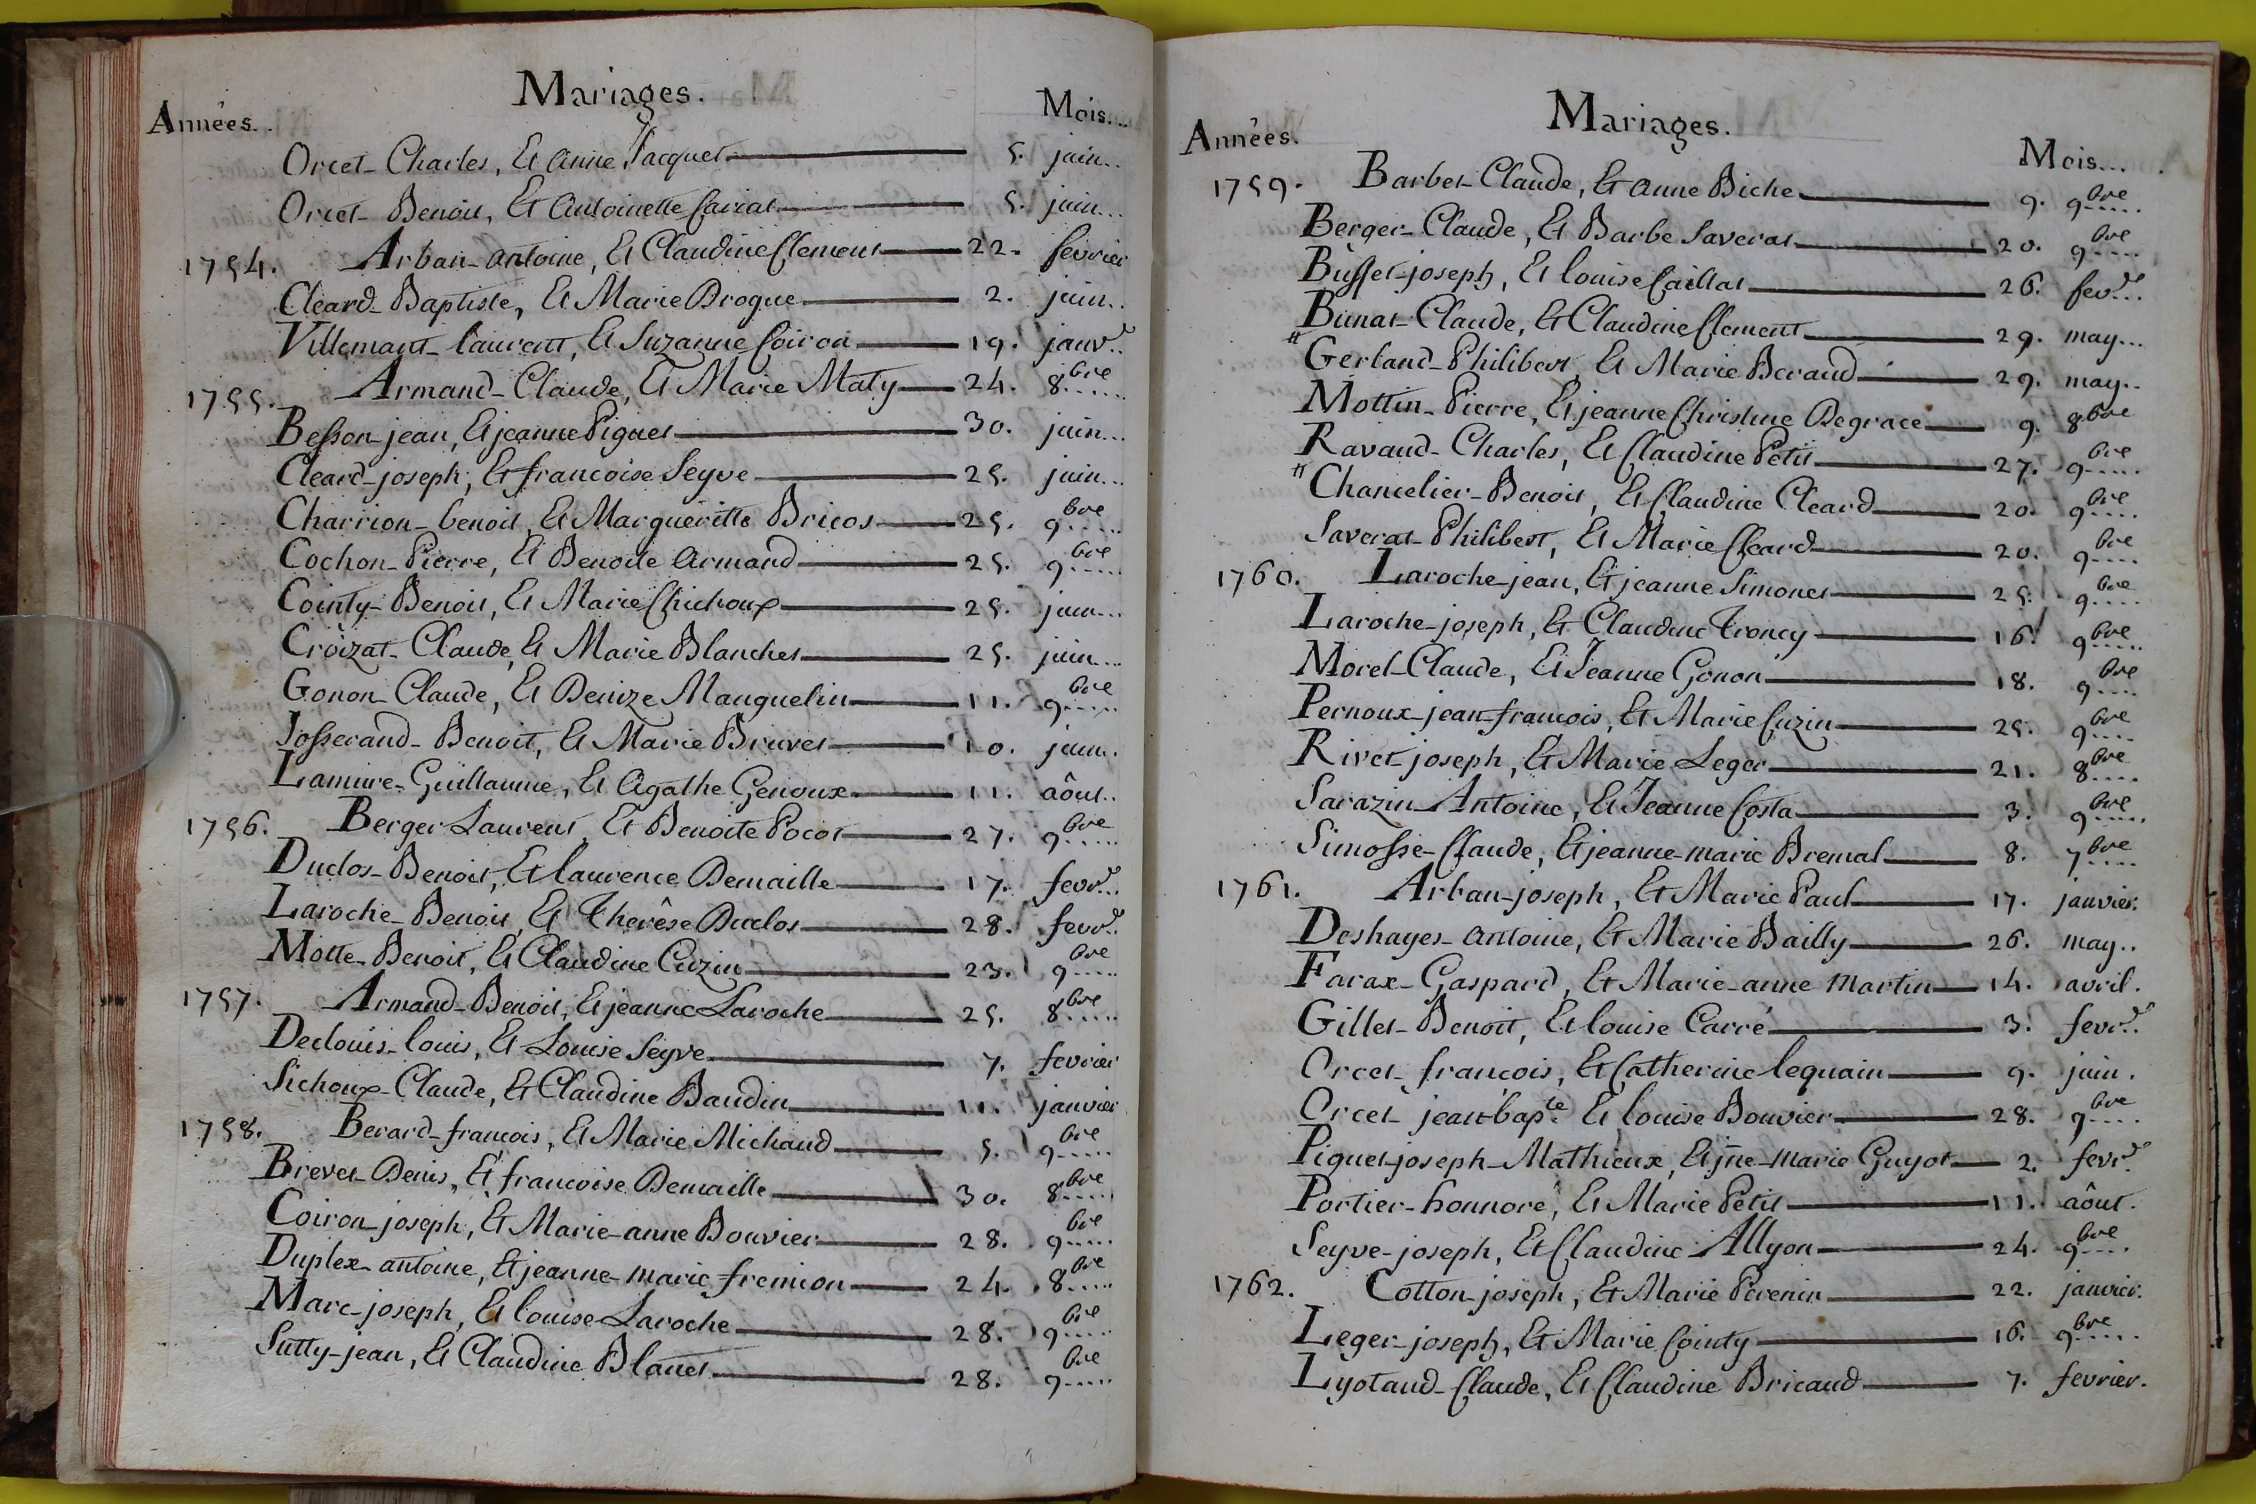 Mariages.
Années. Mois...
Orcet Charles, Et Anne Jacquet 5. juin..
Orcet Benoit, Et Antoinette Cariat 5. juin...
1754. Arban antoine, Et Claudine Clement 22. fevrier
Cleard Baptiste, Et Marie Brogue 2. juin..
Villemant laurent, Et Suzanne Coiron 19. janvr..
1755. Armand Claude, Et Marie Maty 24. 8bre
Besson jean, Et jeanne Piguet 30. juin...
Cleard joseph, Et francoise Seyve 25. juin...
Charrion benoit, Et Margueritte Bricot 25. 9bre
Cochon Pierre, Et Benoite Armand 25. 9bre
Cointy Benoit, Et Marie Chichoux 25. juin...
Croizat Claude, Et Marie Blanchet 25. juin...
Gonon Claude, Et Denize Manguelin 11. 9bre
Josserand Benoit, Et Marie Bruvet 10. juin.
Lamure Guillaume, Et Agathe Genoux 11. aôut..
1756. Berger Laurent, Et Benoite Pocot 27. 9bre
Duclos Benoit, Et laurence Demaille 17. fevr...
Laroche Benoit, Et Therêse Duclos 28. fevr..
Motte Benoit, Et Claudine Cuzin 23. 9bre
1757. Armand Benoit, Et jeanne Laroche 25. 8bre
Declouis louis, Et Louise Seyve 7. fevrier
Sichoux Claude, Et Claudine Baudin 11. janvier
1758. Berard francois, Et Marie Michaud 5. 9bre
Brevet Denis, Et francoise Demaille 30. 8bre
Coiron joseph, Et Marie anne Bouvier 28. 9bre
Duplex antoine, Et jeanne marie fremion 24. 8bre
Marc joseph, Et louise Laroche 28. 9bre
Sutty jean, Et Claudine Blanet 28. 9bre
Mariages.
Années. Mois...
1759. Barbet Claude, Et anne Biche 9. 9bre
Berger Claude, Et Barbe Saverat 20. 9bre
Busset joseph, Et louise Caillat 26. fevr...
Bunat Claude, Et Claudine Clement 29. may...
" Gerland Philibert, Et Marie Beraud 29. may..
Mottin Pierre, Et jeanne Christine Degrace 9. 8bre
Ravaud Charles, Et Claudine Petit 27. 9bre
" Chancelier Benoit, Et Claudine Cleard 20. 9bre
Saverat Philibert, Et Marie Cleard 20. 9bre
1760. Laroche jean, Et jeanne Simonet 25. 9bre
Laroche joseph, Et Claudine Troncy 16. 9bre
Morel Claude, Et Jeanne Gonon 18. 9bre
Pernoux jean francois, Et Marie Cuzin 25. 9bre
Rivet joseph, Et Marie Leger 21. 8bre
Sarazin Antoine, Et Jeanne Costa 3. 9bre
Simosse Claude, Et jeanne marie Bremal 8. 7bre
1761. Arban joseph, Et Marie Paul 17. janvier.
Deshayes antoine, Et Marie Bailly 26. may..
Farax Gaspard, Et Marie anne Martin 14. avril.
Gillet Benoit, Et louise Carré 3. fevr..
Orcet francois, Et Catherine lequain 9. juin.
Orcet jean bapte. Et louise Bouvier 28. 9bre
Piquet joseph Mathieux, Et jne marie Guyot 2. fevr.
Portier honnoré, Et Marie Petit 11. aôut.
Seyve joseph, Et Claudine Allyon 24. 9bre
1762. Cotton joseph, Et Marie Perenin 22. janvier.
Leger joseph, Et Marie Cointy 16. 9bre
Lyotaud Claude, Et Claudine Bricaud 7. fevrier.